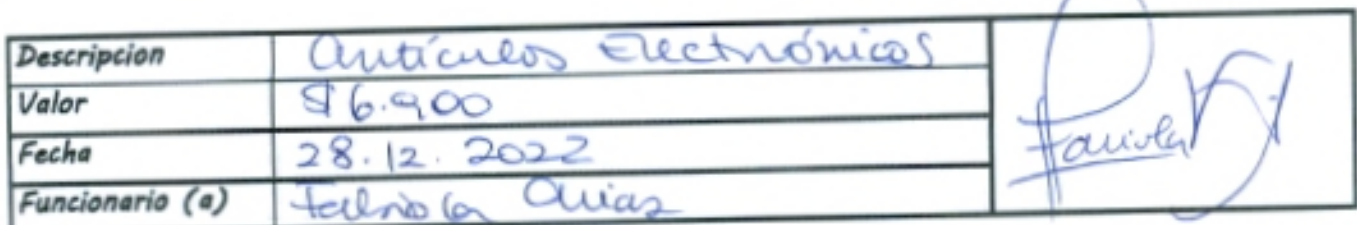 Descripcion Artículos Electrónicos
Valor $6.900
Fecha 28.12.2022
Funcionario (a) Fabiola Arias